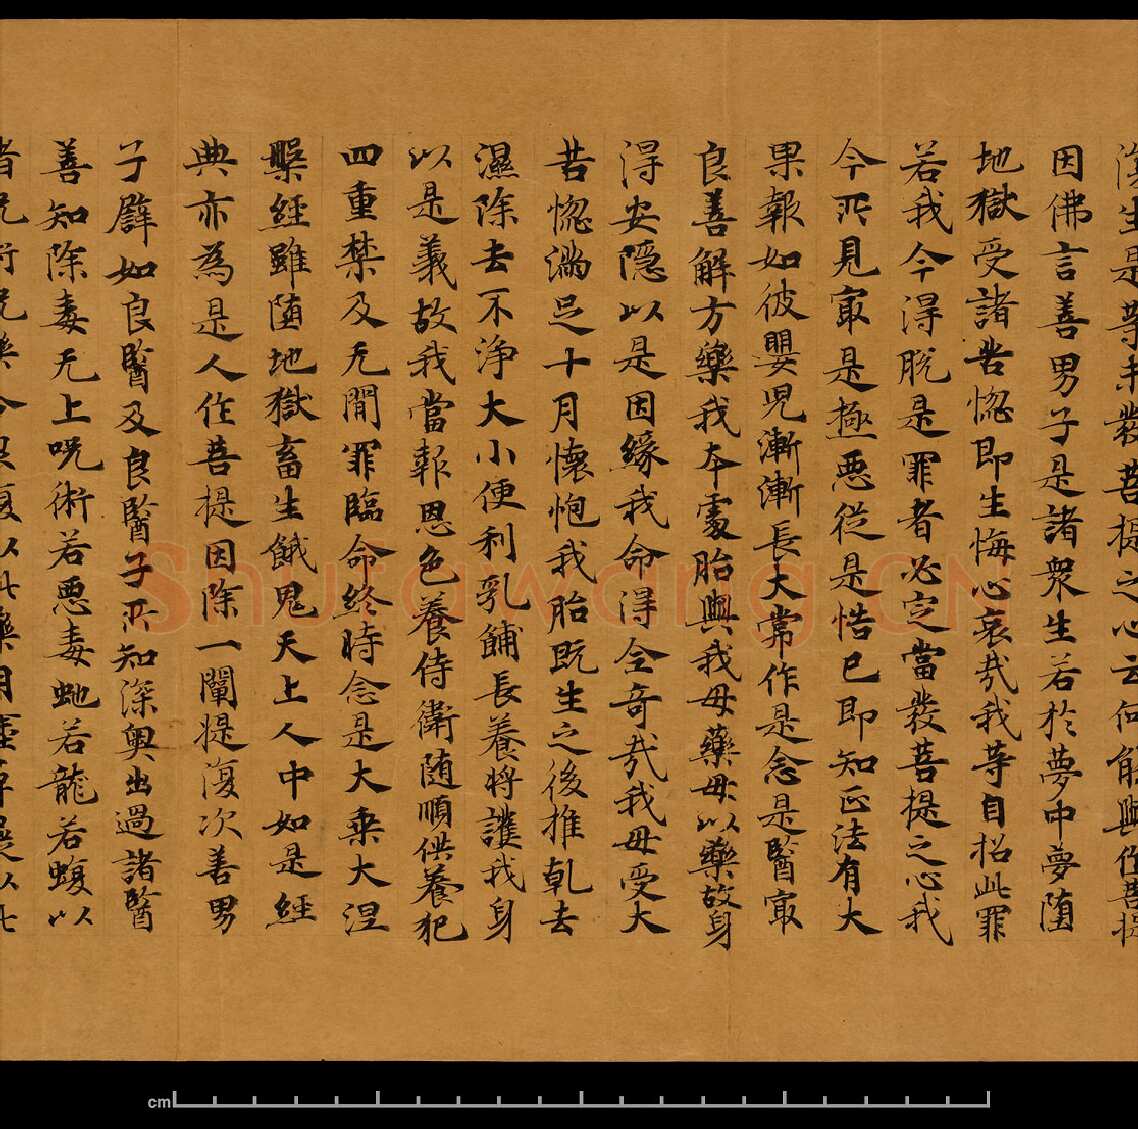 生是等未發菩提之心云何能與作菩提
因佛言善男子是諸衆生若於夢中夢堕
地獄受諸苦惱即生悔心哀㢤我等自招此罪
若我今得脱是罪者必定當發菩提之心我
今所見冣是極惡從是悟已即知正法有大
果報如彼嬰児漸漸長大常作是念是醫冣
良善解方藥我本處胎與我母藥母以藥故身
得安隱以是因緣我命得全奇㢤我母受大
苦惱滿足十月懷抱我胎既生之後推乹去
濕除去不淨大小便利乳餔長養將護我身
以是義故我當報恩色養侍衛随順供養犯
四重禁及无間罪臨命終時念是大乗大涅
槃經雖堕地獄畜生餓鬼天上人中如是經
典亦為是人作菩提因除一闡提復次善男
子譬如良醫及良醫子所知深奥出過諸醫
善知除毒无上呪術若惡毒虵若龍若蝮以
者呪術呪藥令
Shufawang.CN
cm